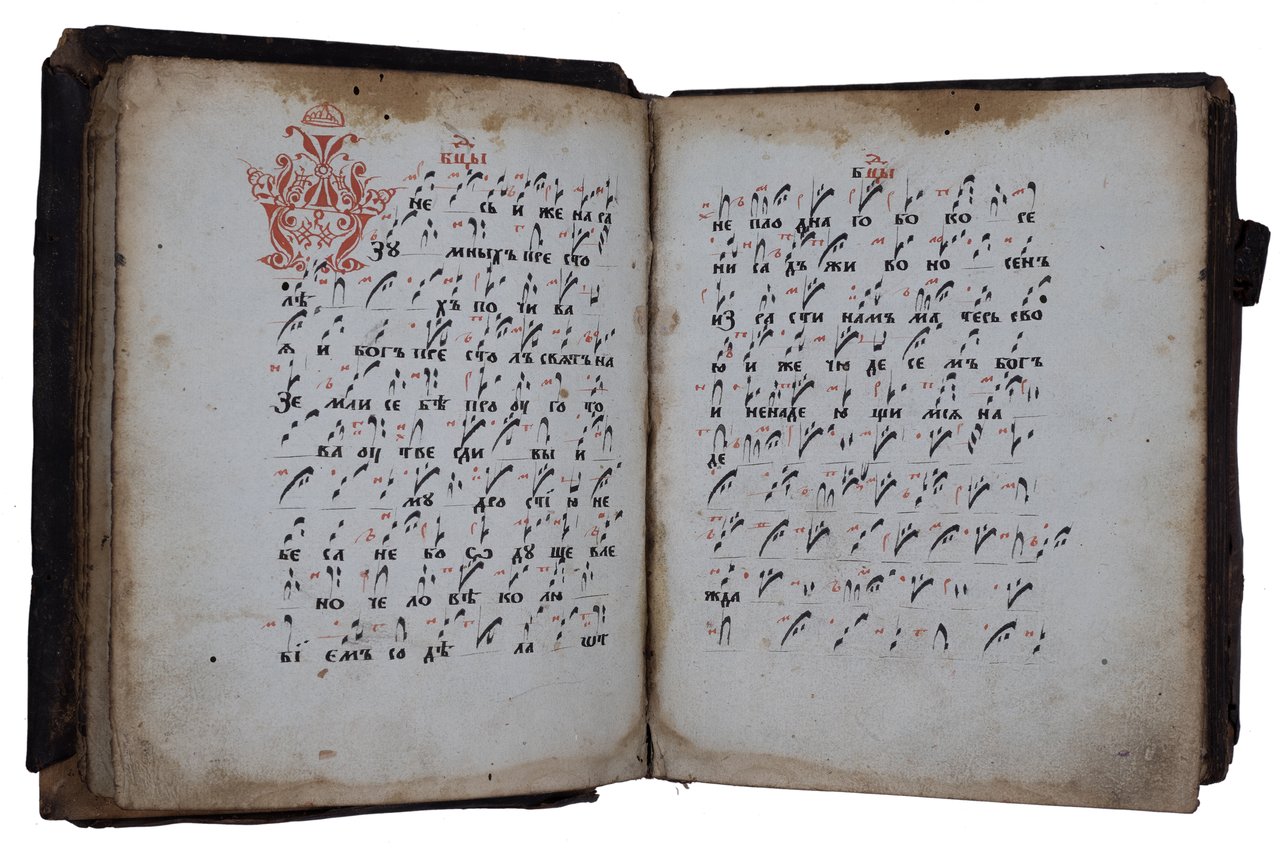 бцы
не сь и же на ра
зу мныхъ пре сто
лѣ хъ по чи ва
я и богъ пре сто лъ святъ на
зе мли се бѣ про оу го то
ва оу тве рди вы и
му дро стї ю не
бе са не бо ѡ ду ше вле
но че ло вѣ ко лю
бї емъ со дѣ ла
бцы
не пло дна го бо ко ре
ни са дъ жи во но сенъ
из ра сти намъ ма терь сво
ю и же чю де се мъ богъ
и ненаде ю щи мся на
де
жда